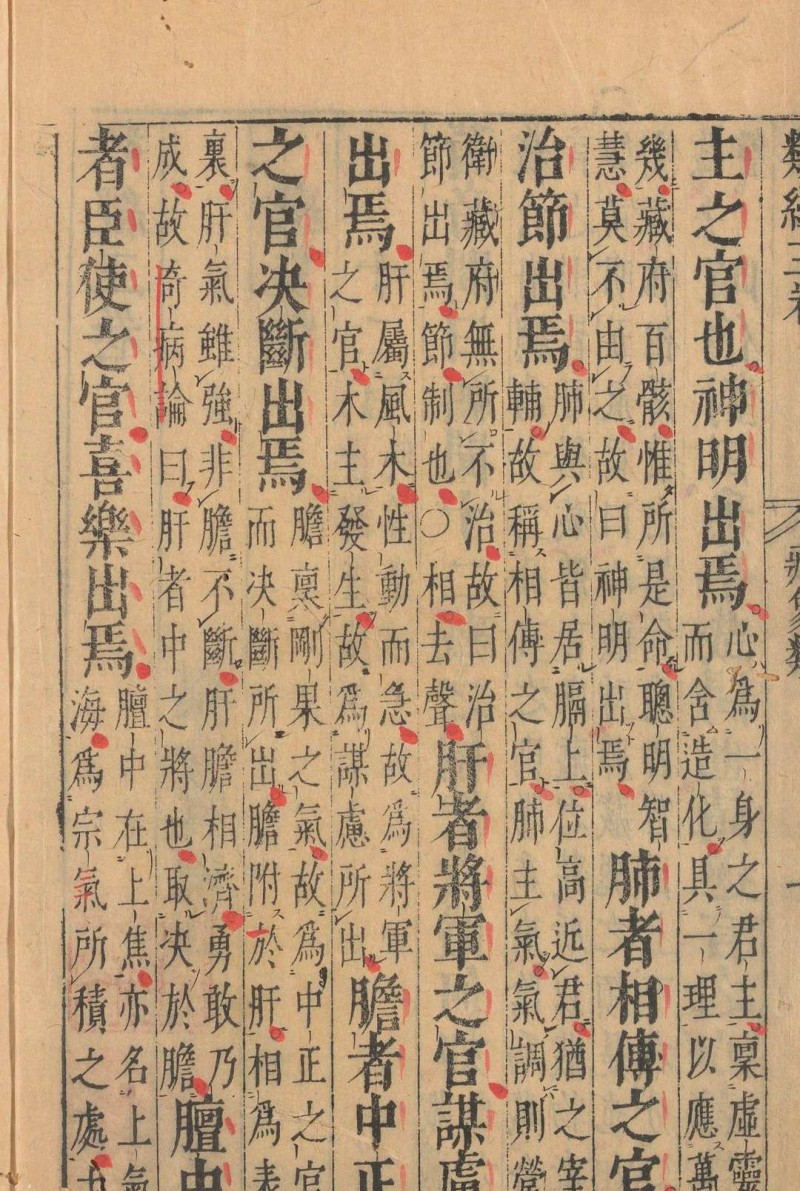 類經三卷 藏象類 一
主之官也神明出焉
心爲一身之君主稟虛靈
而舍造化具一理以應萬
幾藏府百骸惟所是命聰明智
慧莫不由之故曰神明出焉
肺者相傳之官
治節出焉
肺與心皆居膈上位高近君猶之宰
輔故稱相傳之官肺主氣氣調則營
衛藏府無所不治故曰治
節出焉節制也○相去聲
肝者將軍之官謀慮
出焉
肝屬風木性動而急故爲將軍
之官木主發生故爲謀慮所出
膽者中正
之官决斷出焉
膽稟剛果之氣故爲中正之官
而决斷所出膽附於肝相爲表
裏肝氣雖強非膽不斷肝膽相濟勇敢乃
成故奇病論曰肝者中之將也取决於膽
膻中
者臣使之官喜樂出焉
膻中在上焦亦名上氣
海爲宗氣所積之處